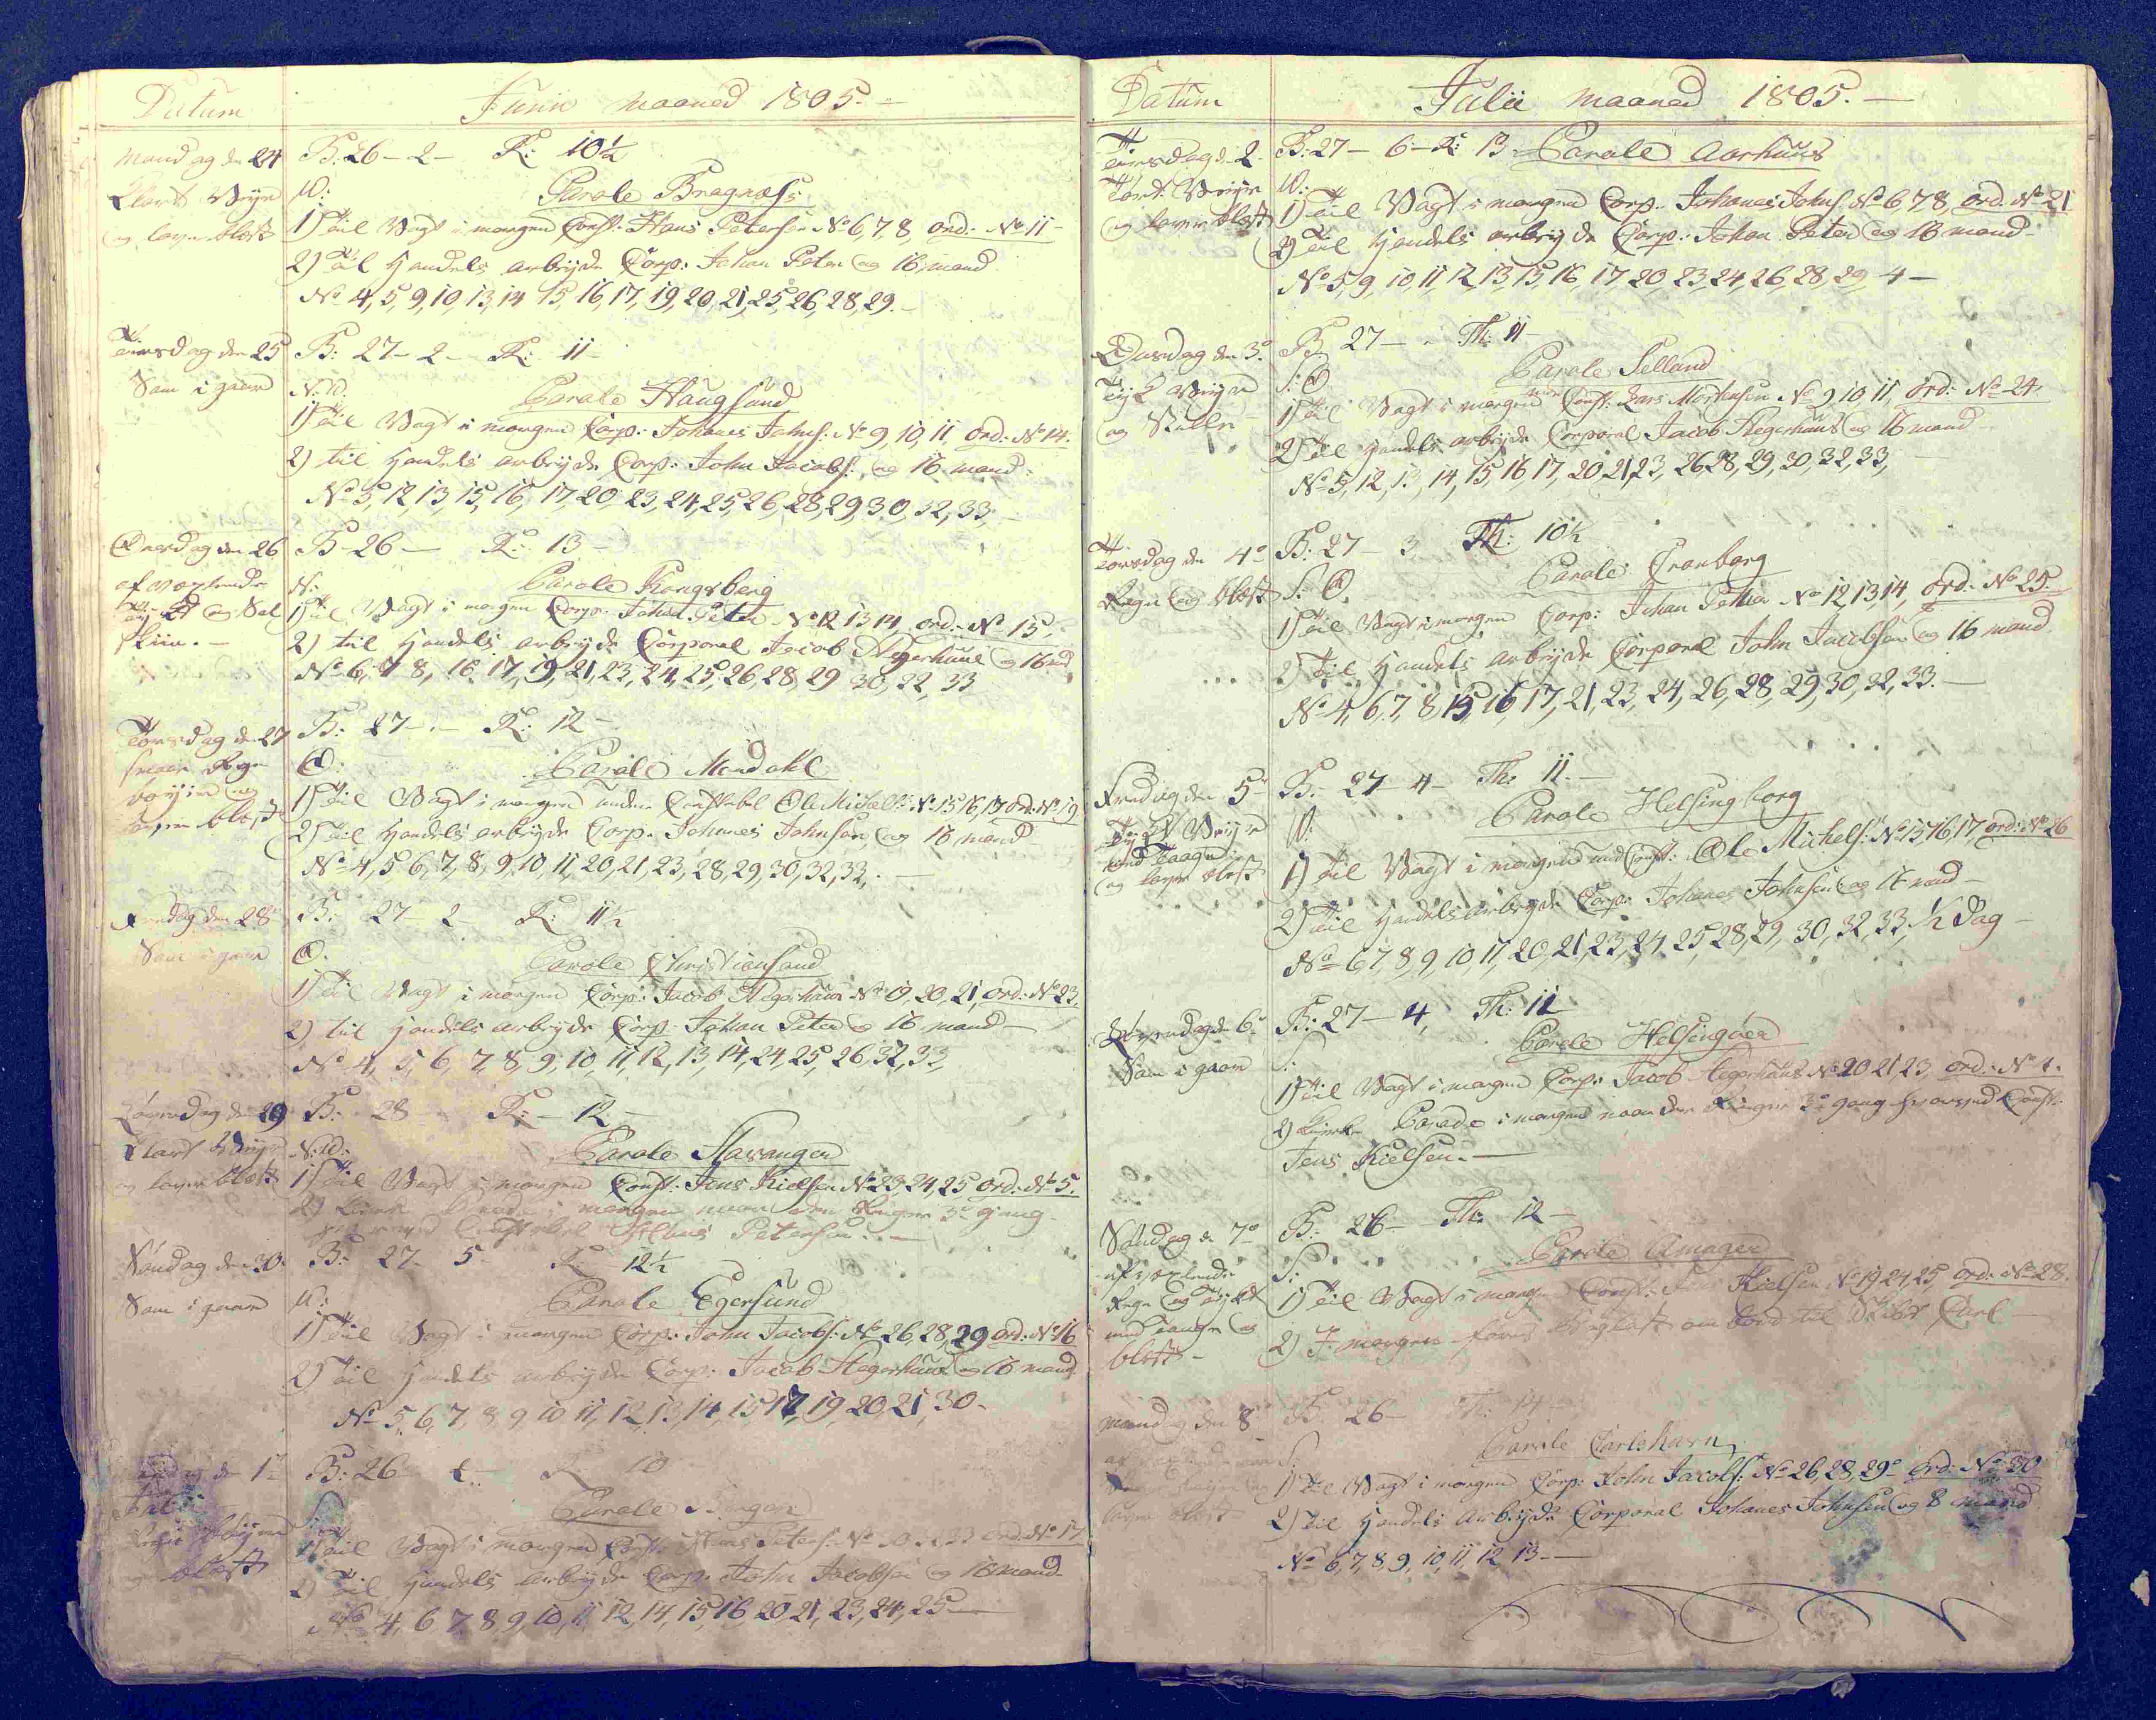 Datum
Junii maaned 1805.
Mandag den 24
B: 26 - 2 - R: 10½
Klart Veyr
W:
Parole Bragnæss
og lager blæst
1) Til Vagt i morgen Const: Hans Petersen No 6, 7, 8 ord: No 11
2) Til Handels arbeyde Corp: Johan Peter og 16 mand
No 4, 5, 9, 10, 13, 14, 15, 16, 17, 19, 20, 21, 25, 26, 28, 29.
Tiirsdag den 25
B: 27 - 2 - R: 11
Som i gaar
N:W.
Parole Haugsund
1) Til Vagt i morgen Corp: Johanes Johns: No 9, 10, 11, ord: No 14.
2) til Handels arbeyde Corp: John Jacobs: og 16 mand.
No 5, 12, 13, 15, 16, 17, 20, 23, 24, 25, 26, 28, 29, 30, 32, 33,
Onsdag den 26
B - 26 - R: 13 -
af vexlende
N:
Parole Kongsberg
og Sol
1) Til Vagt i morgen Corp: Johan Peter No 12 13 14, ord: No 15.
skiin. -
2) til Handels arbeyde Corporal Jacob Hegerhuus og 16 md
No 6, 7, 8, 16, 17, 19, 21, 23, 24, 25, 26, 28, 29 30, 32, 33
Torsdag den 27
B: 27 - R: 12 -
O:
Parole Mandahl
1) Til Vagt i morgen under Constabel Ole Michels: No 15 16, 17 ord: No 19
blæst
2) Til Handels arbeyde Corp. Johanes Johnsen, og 16 mand
No 4, 5, 6, 7, 8, 9, 10, 11, 20, 21, 23, 28, 29, 30, 32, 33,.
Fredag den 28
B: 27 - 2 - R: 11½
Som i gaar
O.
Parole Christiansand
1) Til Vagt i morgen Corp: Jacob Hegerhuus No 19, 20, 21, ord: No 23.
2) til Handels arbeyde Corp: Johan Peter og 16 mand
No 4, 5, 6, 7, 8, 9, 10, 11, 12, 13, 14, 24, 25, 26, 32, 33,
Løverdag den 29
B: 28 - R: - 12 -
Klart Veyr
N:W.
Parole Stavanger
og lager blæst
1) Til Vagt i morgen Const: Jens Kielsen No 23, 24, 25 ord: No 5.
2) Kirke Parade i morgen naar der Ringes 3de gang
Constabel Hans Petersen.
Søndag den 30.
B: 27 - 5 - R: 12½
Som i gaar
W:
Parole Egersund
1) Til Vagt i morgen Corp: John Jacobs: No 26, 28, 29 ord: No 16
2) Til Handels arbeyde Corp: Jacob Hegerhuus og 16 mand
No 5, 6, 7, 8, 9, 10, 11, 12, 13, 14, 15 17, 19, 20, 21, 30.
Mandag den 1
B: 26 R 10
Julii
Parole Bergen
1) Til Vagt i morgen Const: Hans Peters: No 30 32 33 ord: No 17
og blæst
2) Til Handels arbeyde Corp. John Jacobsen og 16 mand
No 4, 6, 7, 8, 9, 10, 11, 12, 14, 15, 16 20, 21, 23, 24, 25
Datum
Julii maaned 1805.
Tiirsdag d. 2.
B: 27 - 6 - R: 13 Parole Aarhuus
Veyr
W:
og lager blæst
1) Til Vagt i morgen Corp: Johanes Johns. No 6, 7, 8, ord: No 21
2) Til Handels arbeyde Corp: Johan Peter og 16 mand
No 5, 9, 10, 11, 12, 13, 15, 16, 17 20, 23, 24, 26, 28, 29, 4 -
Onsdag den 3.
B 27 - Th: 11
Tyk Veyr
S:O
Parole Selland
og Stille
1) Til Vagt i morgen under Const: Lars Mortensen No 9 10 11, ord: No 24.
2) Til Handels arbeyde Corporal Jacob Hegerhuus og 16 mand
No 5, 12, 13, 14, 15, 16, 17, 20, 21, 23, 26, 28, 29, 30, 32, 33,
Torsdag den 4
B: 27 - 3 Th: 10½
Regn og blæst
S:O.
Parole Cronborg
1) Til Vagt i morgen Corp: Johan Petter No 12, 13, 14, ord: No 25
2) Til Handels arbeyde Corporal John Jacobsen og 16 mand
No 4, 6, 7, 8, 15, 16, 17, 21, 23, 24, 26, 28, 29, 30, 32, 33.
Fredag den 5
B: 27 - 4 - Th: 11.
Tykt Veyr
W:
Parole Helsingborg
med Taage
1) Til Vagt i morgen und Const: Ole Michels: No 15 16 17, ord: No 26
og lager blæst
2) Til Handels arbeyde Corp: Johanes Johnsen og 16 mand
No 6, 7, 8, 9, 10, 11, 20, 21, 23, 24, 25, 28, 29, 30, 32, 33, ½ dag
Løverdag d. 6
B: 27 - 4, Th: 11
Som i gaar
S:
Parole Helsingøer
1) Til Vagt i morgen Corp: Jacob Hegerhuus No 20 21 23, ord: No 4.
2) Kirke Parade i morgen naar der Ringes 3de gang Const:
Jens Kielsen.
Søndag d. 7
B: 26 - Th: 12 -
afvexlende
S:
Parole Amager
Regn og Tykt
1) Til Vagt i morgen Const: Jens Kielsen No 19 24 25, ord: No 28.
med Taage og
2) I morgen om bord til Skibet Carl
blæst -
Mandag den 8
B 26 - Th: 14
S:
Parole Carlshavn
1) Til Vagt i morgen Corp: John Jacobs: No 26, 28, 29 ord: No 30
lager blæst
2) Til Handels Arbeyde Corporal Johanes Johnsen og 8 mand
No 6, 7, 8, 9, 10, 11, 12 13.